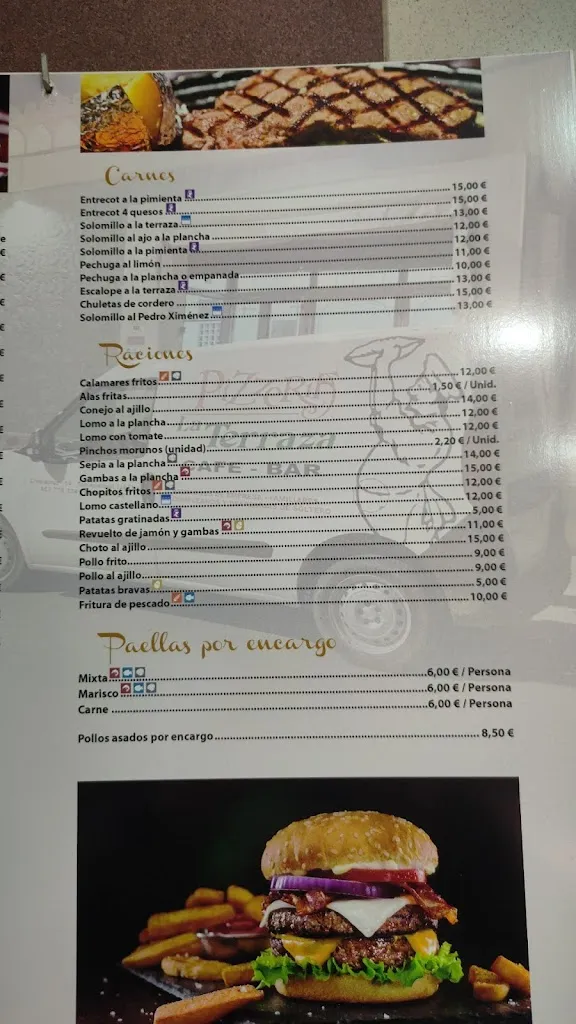 Carnes
Entrecot a la pimienta 15,00 €
Entrecot 4 quesos 15,00 €
Solomillo a la terraza 13,00 €
Solomillo al ajo a la plancha 12,00 €
Solomillo a la pimienta 12,00 €
Pechuga al limón 11,00 €
Pechuga a la plancha o empanada 10,00 €
Escalope a la terraza 13,00 €
Chuletas de cordero 15,00 €
Solomillo al Pedro Ximénez 13,00 €
Raciones
Calamares fritos 12,00 €
Alas fritas 1,50 € / Unid.
Conejo al ajillo 14,00 €
Lomo a la plancha 12,00 €
Lomo con tomate 12,00 €
Pinchos morunos (unidad) 2,20 € / Unid.
Sepia a la plancha 14,00 €
Gambas a la plancha 15,00 €
Chopitos fritos 12,00 €
Lomo castellano 12,00 €
Patatas gratinadas 5,00 €
Revuelto de jamón y gambas 11,00 €
Choto al ajillo 15,00 €
Pollo frito 9,00 €
Pollo al ajillo 9,00 €
Patatas bravas 5,00 €
Fritura de pescado 10,00 €
PIZZERIAS
La Terraza
CAFE - BAR
Paellas por encargo
Mixta 6,00 € / Persona
Marisco 6,00 € / Persona
Carne 6,00 € / Persona
Pollos asados por encargo 8,50 €